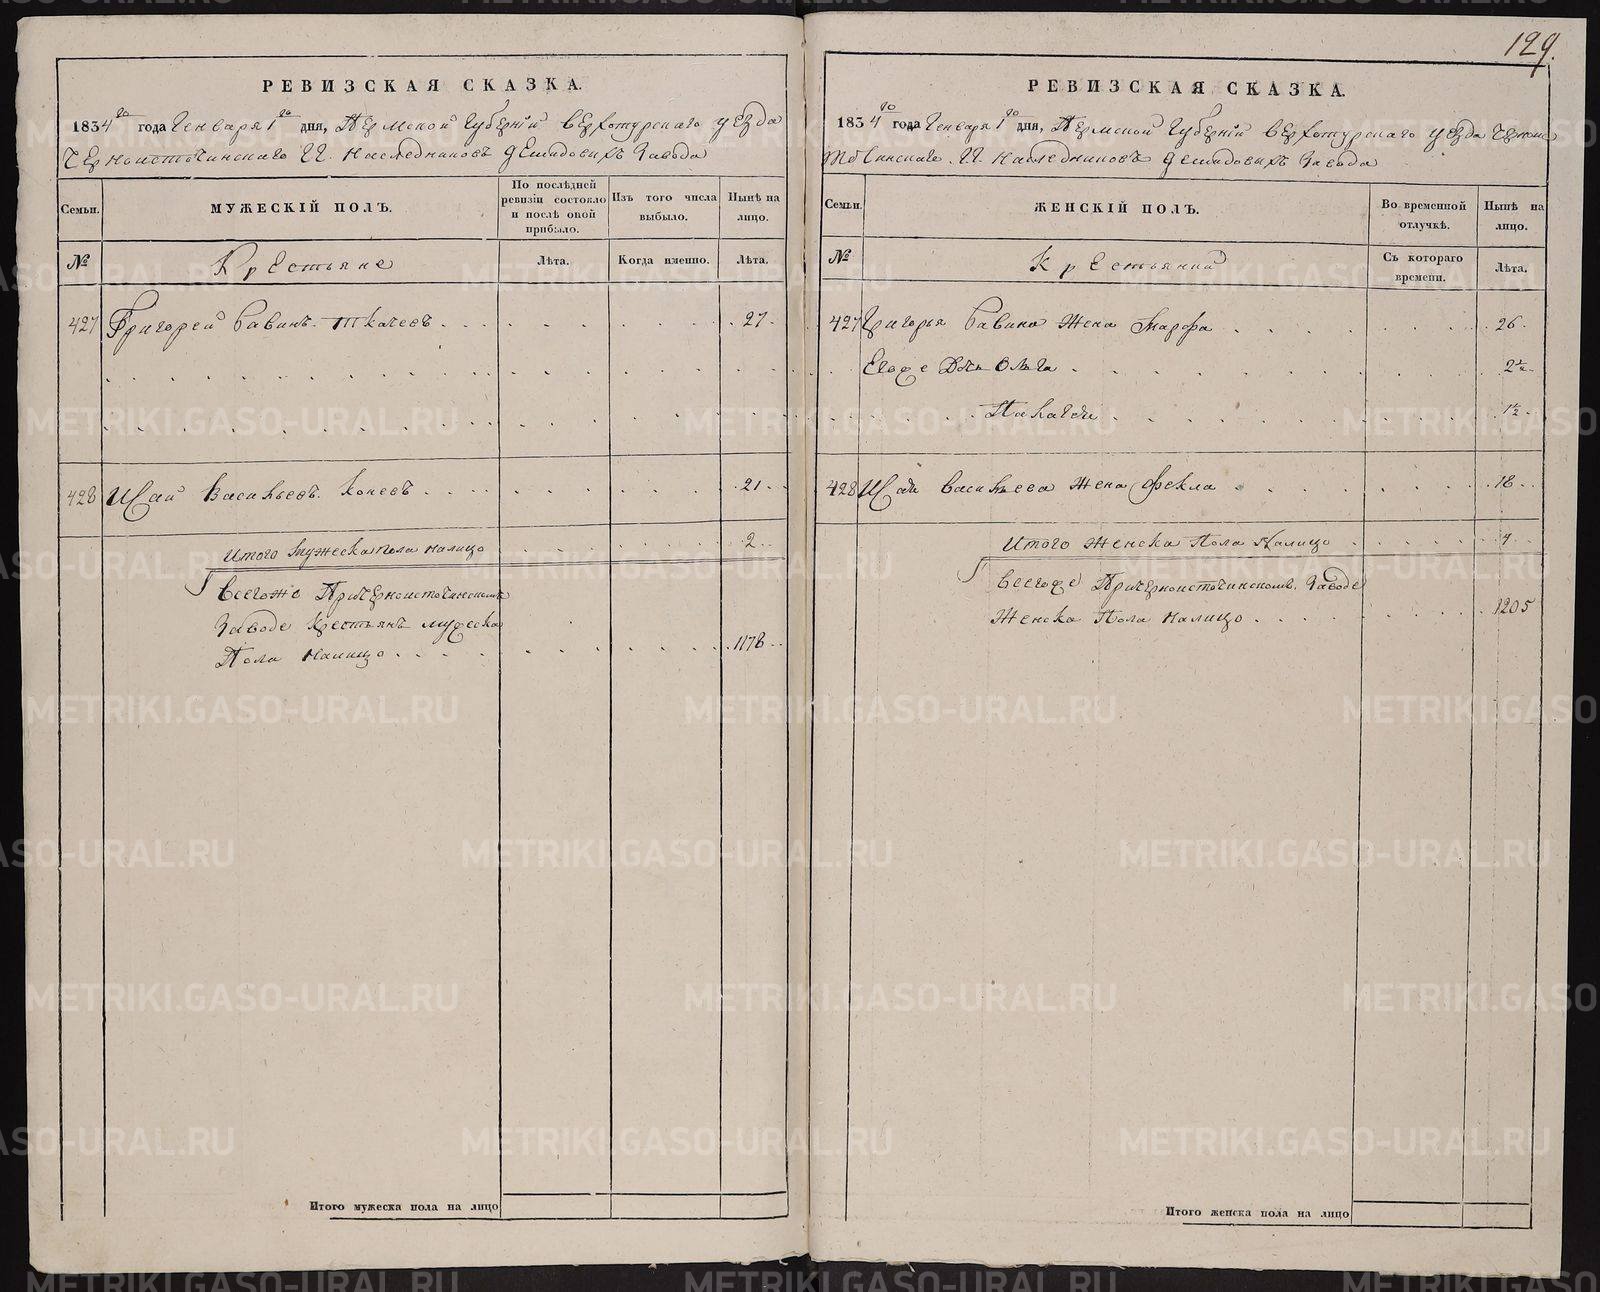 129.
РЕВИЗСКАЯ СКАЗКА.
1834го года Генваря 1го дня, Пермской Губерніи Верхотурскаго уезда
Черноисточинскаго ГГ. Наследниковъ Демидовыхъ Завода
Семьи.
МУЖЕСКІЙ ПОЛЪ.
По послѣдней ревизіи состояло и послѣ оной прибыло.
Изъ того числа выбыло.
Нынѣ на лицо.
№
Крестьяне
Лѣта.
Когда именно.
Лѣта.
427 Григорей Савинъ Ткачевъ 27
428 Исай Васильевъ Копевъ 21
Итого мужеска пола налицо 2
Всегоже Причерноисточинскомъ
Заводе Крестьянъ мужеска
Пола налицо 1178
Итого мужеска пола на лицо
РЕВИЗСКАЯ СКАЗКА.
1834го года Генваря 1го дня, Пермской Губерніи Верхотурскаго уезда Черноис
точинскаго ГГ. Наследниковъ Демидовыхъ Завода
Семьи.
ЖЕНСКІЙ ПОЛЪ.
Во временной отлучкѣ.
Нынѣ на лицо.
№
Крестьянки
Съ котораго времени.
Лѣта.
427 Григорья Савина Жена Марфа 26
Егоже Дочь Ольга 2
1/2
428 Исая Васильева Жена Фекла 18
Итого Женска Пола Налицо 4
Всегоже Причерноисточинскомъ Заводе
Женска Пола налицо 1205
Итого женска пола на лицо
METRIKI.GASO-URAL.RU